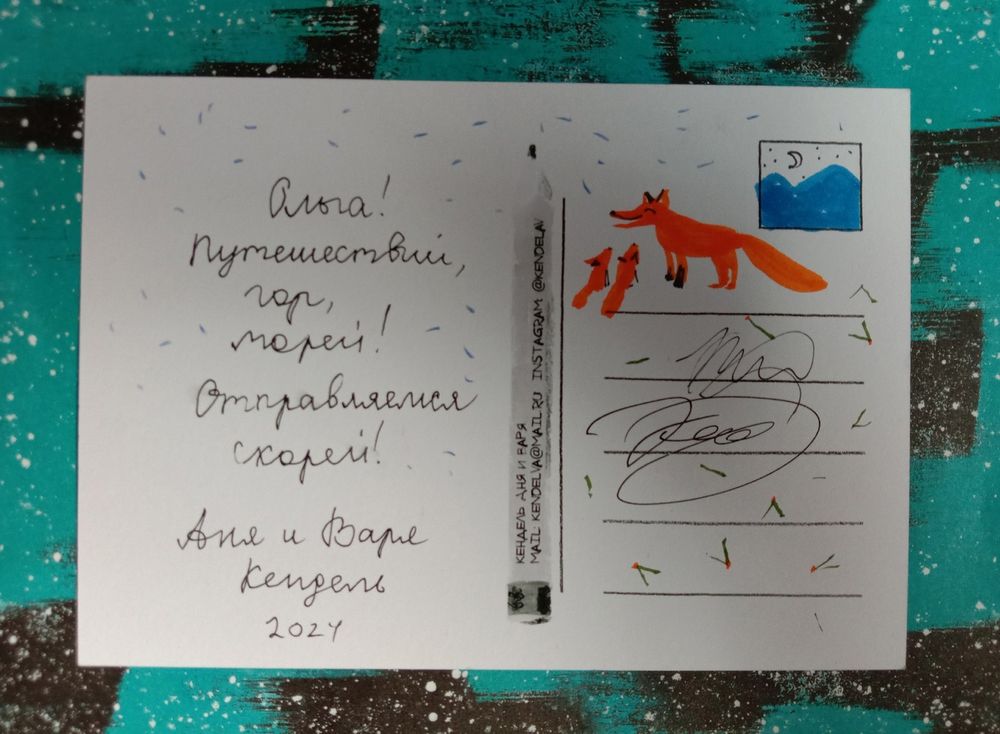 Ольга!
Путешествий,
гор,
морей!
Отправляемся
скорей!
Аня и Варя
Кендель
2024
КЕНДЕЛЬ АНЯ И ВАРЯ
MAIL: KENDELVA@MAIL.RU INSTAGRAM: @KENDELAV